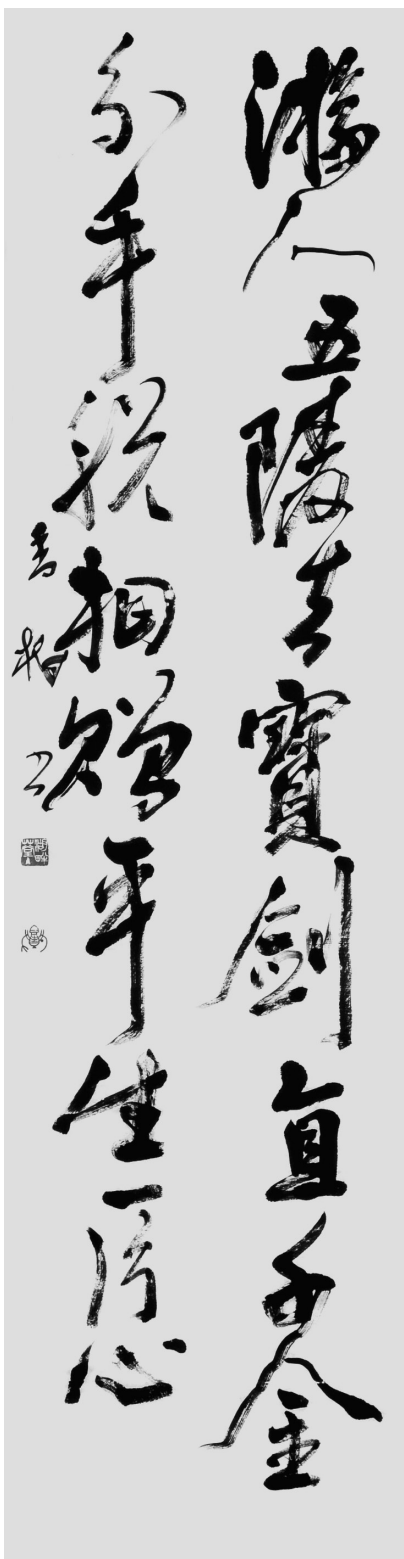 游人五陵去寶劍直千金
分手脱相贈平生一片心